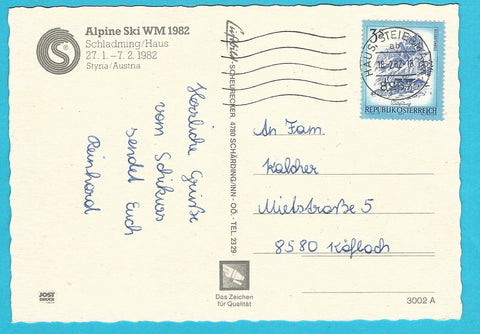 Alpine Ski WM 1982
Schladming/Haus
27. 1. – 7. 2. 1982
Styria/Austria
Herzliche Grüße
vom Schikurs
sendet Euch
Reinhard
SCHEURECKER, 4780 SCHÄRDING/INN - OÖ. - TEL. 2329
3S
REPUBLIK ÖSTERREICH
HAUS, STEIERMARK
8967
An Fam.
Kalcher
Mietstraße 5
8580 Köflach
JOST
DRUCK
Das Zeichen
für Qualität
3002 A